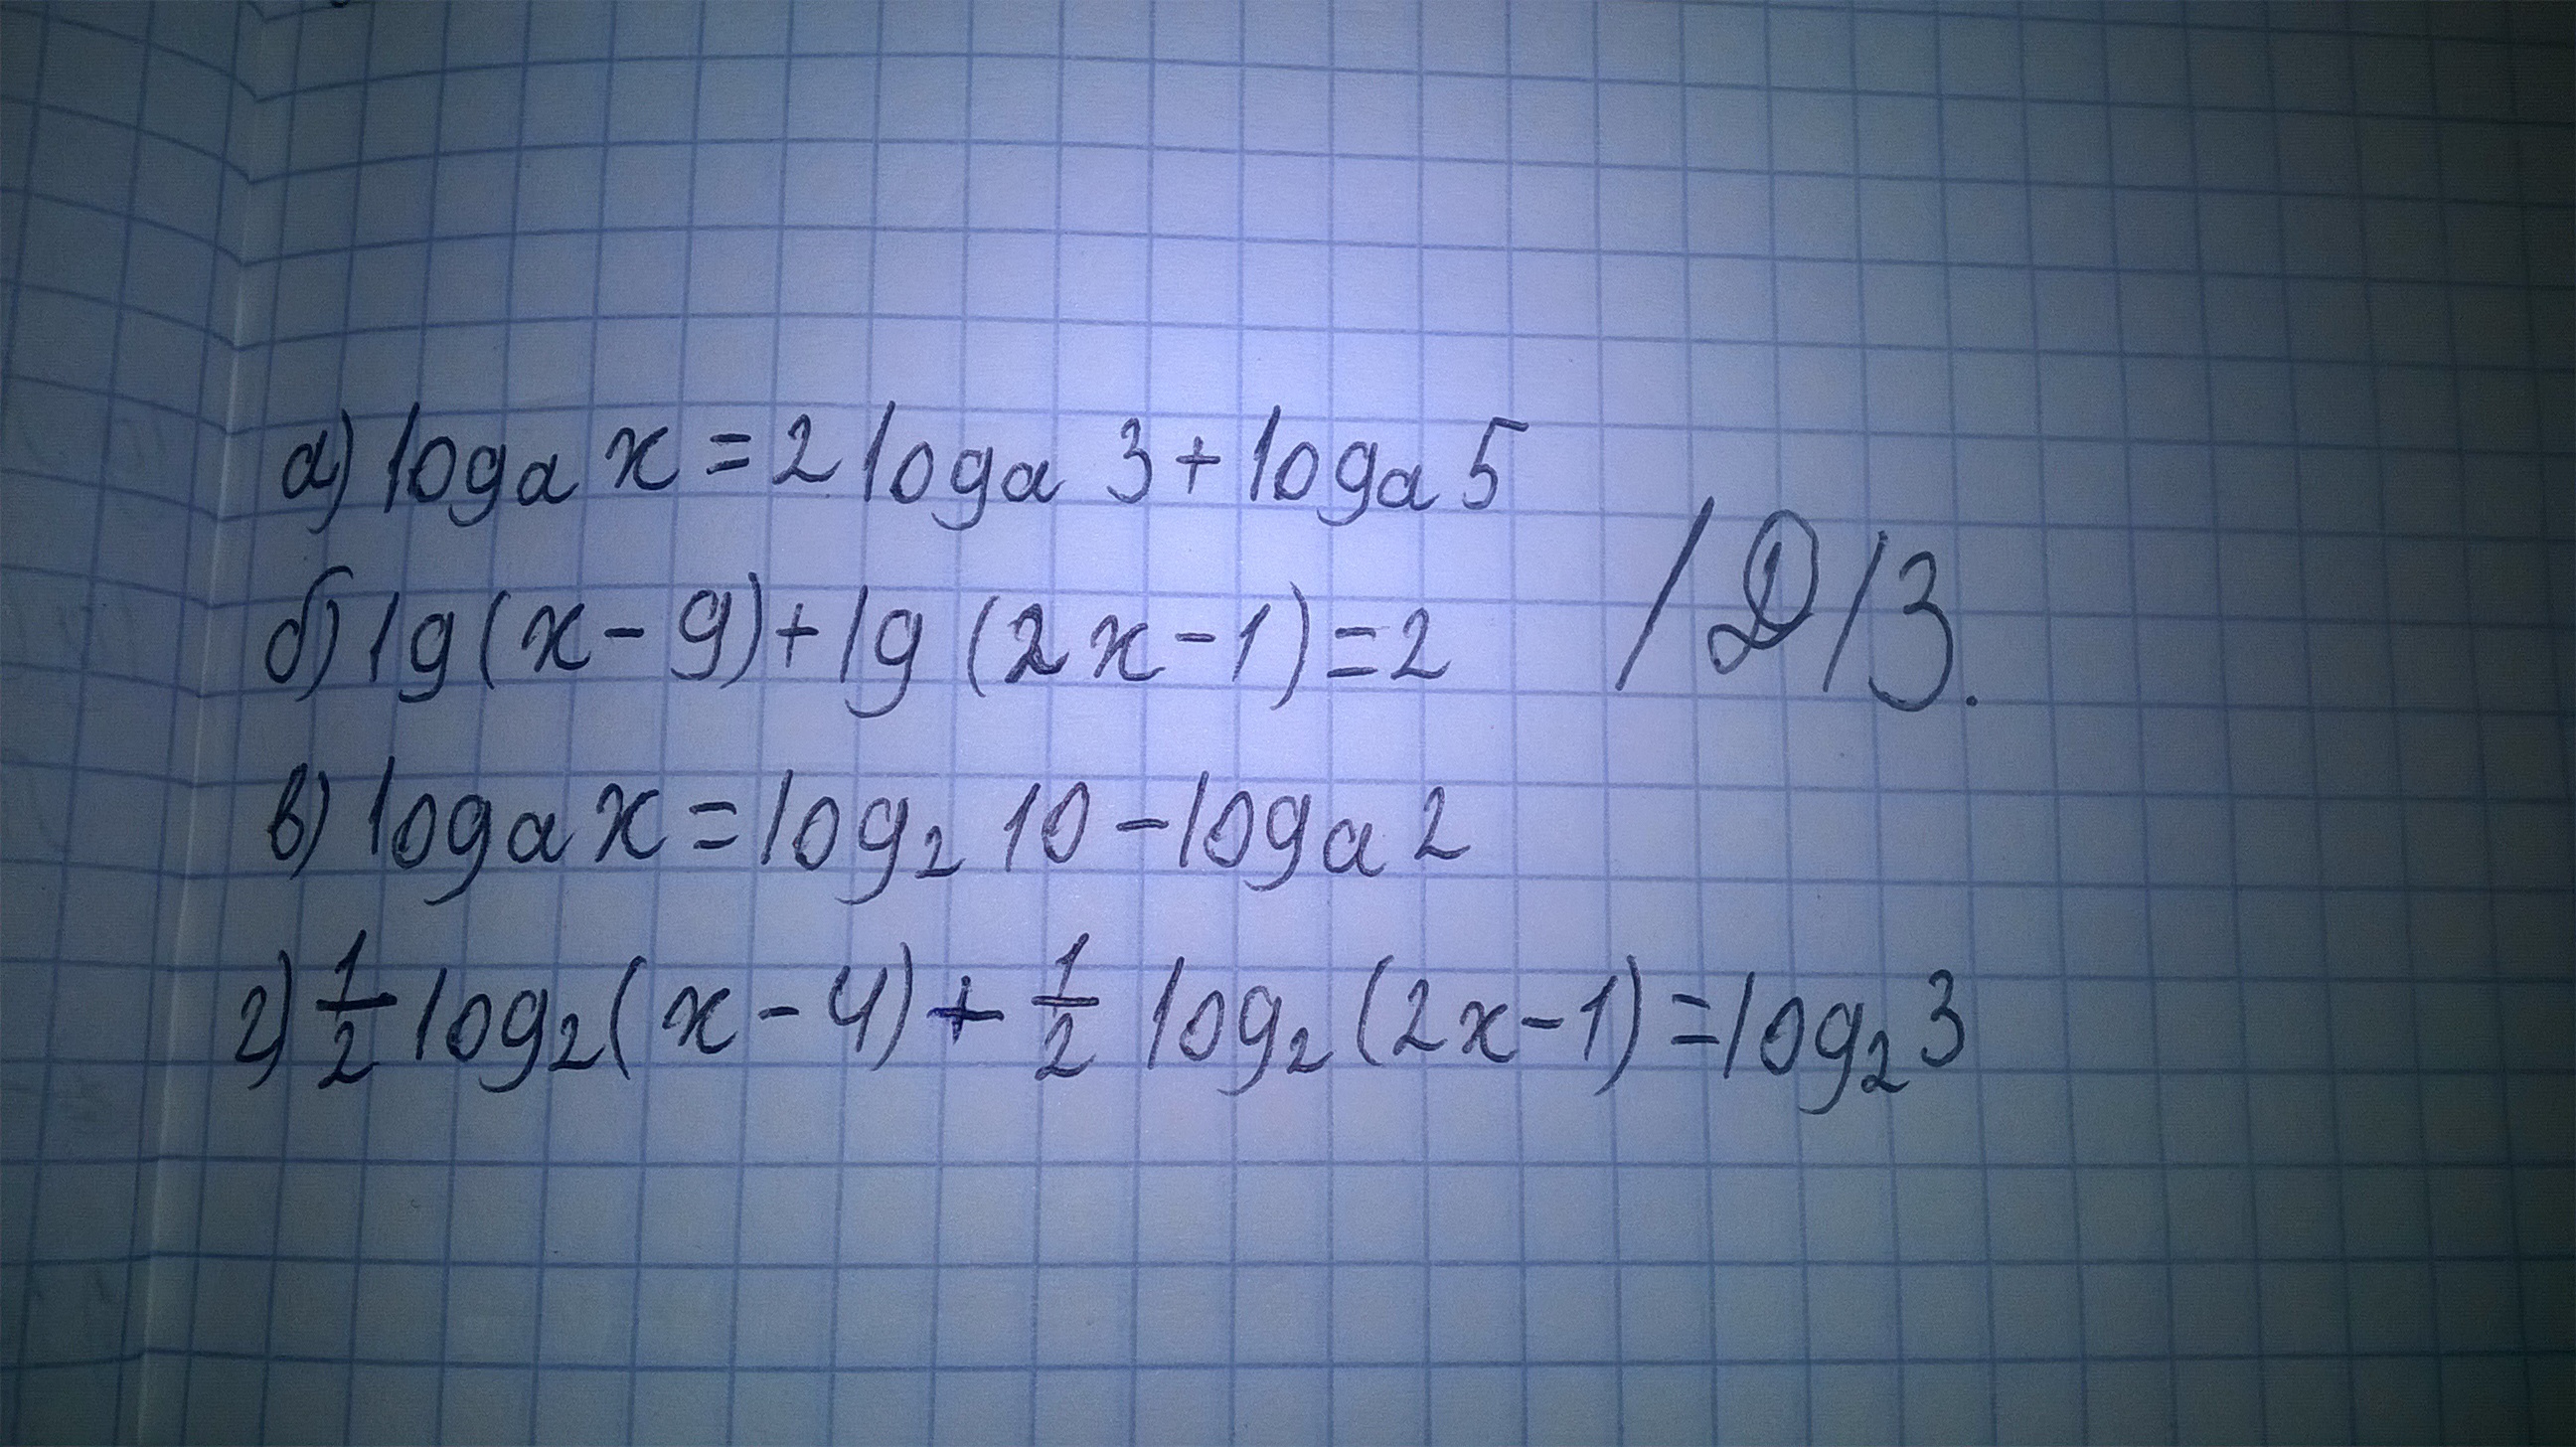 а) logₐ x = 2 logₐ 3 + logₐ 5
б) lg (x - 9) + lg (2x - 1) = 2
/Д/З.
в) logₐ x = log₂ 10 - logₐ 2
г) 1/2 log₂ (x - 4) + 1/2 log₂ (2x - 1) = log₂ 3